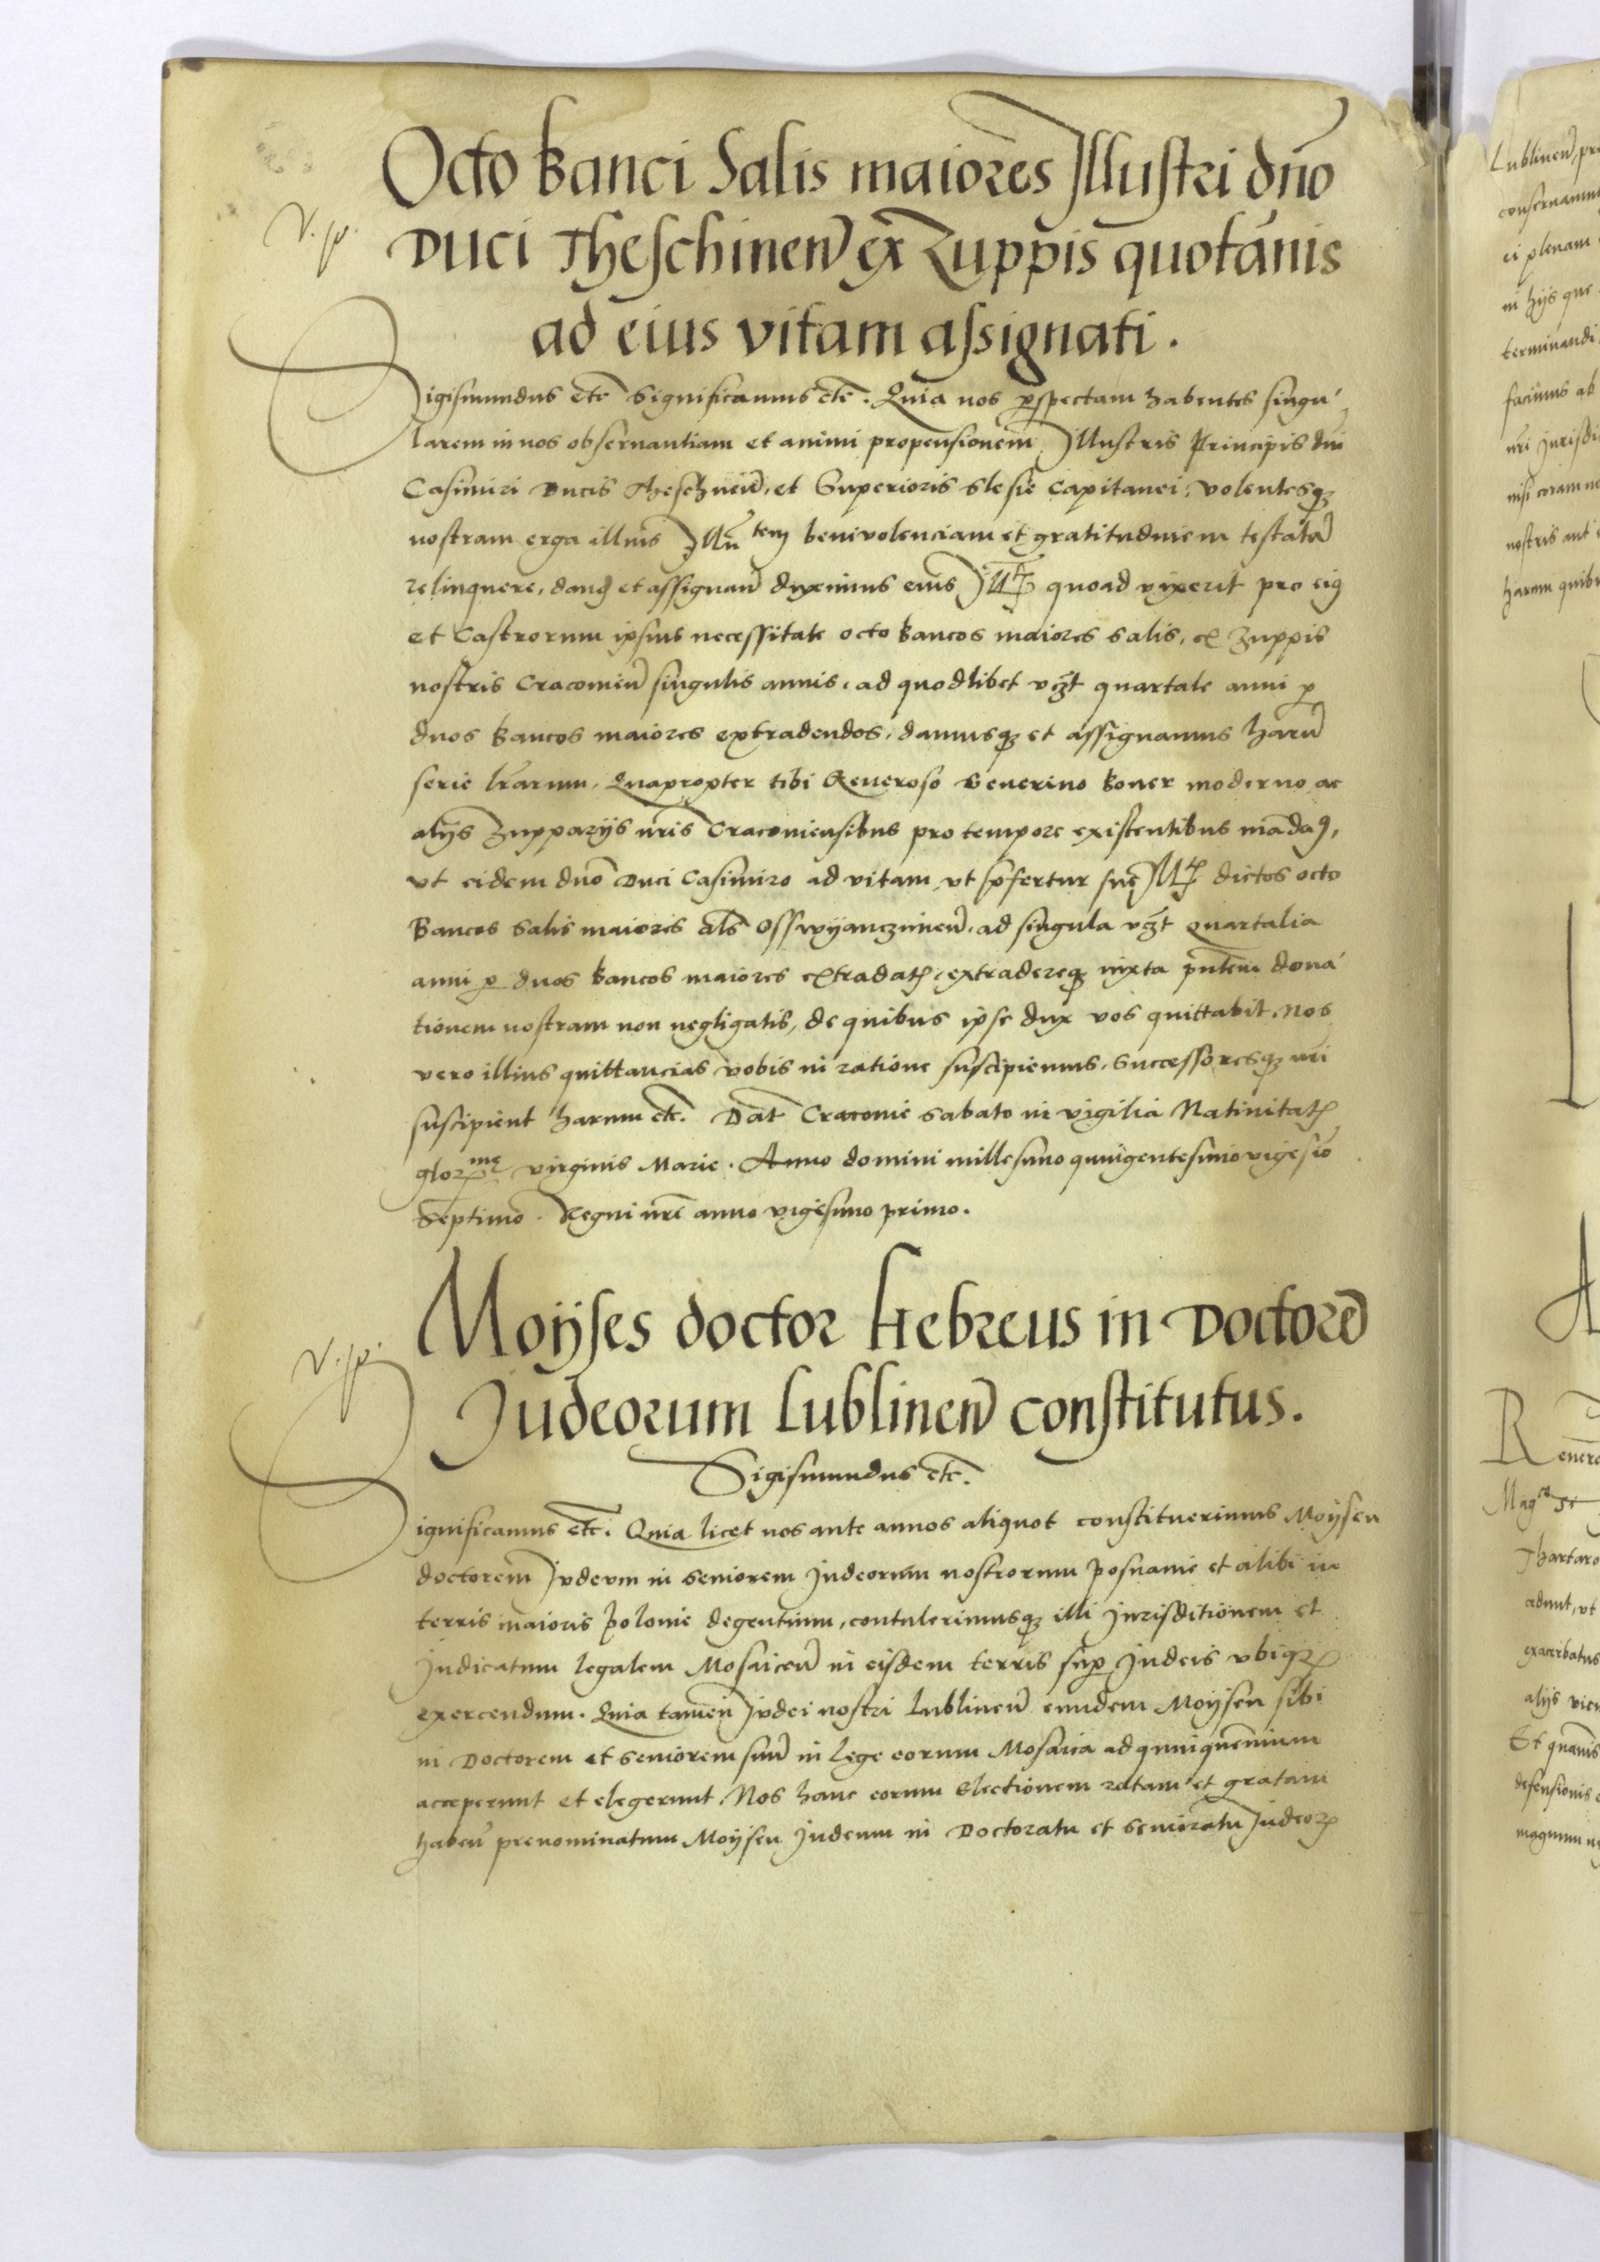 Octo Banci Salis maiores Illustri dno
V. sp.
Duci Theschinen ex Zuppis quotannis
ad eius vitam assignati.
Sigismundus etc Significamus etc. Quia nos perspectam habentes singu
larem in nos observantiam et animi propensionem Illustris Principis dni
Casimiri Ducis Theschinen, et Superioris Slesie Capitanei, volentesq
nostram erga illius Illutem benivolenciam et gratitudinem testatam
relinquere, dand et assignan duximus eius quoad vixerit pro eius
et Castrorum ipsius necessitate octo bancos maiores salis, ex Zuppis
nostris Cracovien singulis annis, ad quodlibet vczt quartale anni per
duos bancos maiores extradendos, damusq et assignamus harum
serie lrarum. Quapropter tibi Generoso Severino Boner moderno ac
alijs Zupparijs nris Cracoviensibus pro tempore existentibus mandam,
vt eidem dno Duci Casimiro ad vitam vt prefertur sue dictos octo
Bancos salis maiores als Osswyanczimen, ad singula vczt quartalia
anni per duos bancos maiores extradatis, extradereq iuxta pntem dona
tionem nostram non negligatis, de quibus ipse dux vos quittabit. Nos
vero illius quittancias vobis in ratione suscipiemus, Successoresq nri
suscipient harum etc. Dat Cracovie Sabato in vigilia Nativitatis
glorme virginis Marie. Anno domini millesimo quingentesimo vigesimo
Septimo. Regni nri anno vigesimo primo.
Moyses doctor Hebreus in Doctorem
V. sp.
Judeorum Lublinen constitutus.
Sigismundus etc.
Significamus etc. Quia licet nos ante annos aliquot constituerimus Moysen
doctorem Judeum in seniorem Judeorum nostrorum Posnanie et alibi in
terris maioris Polonie degentium, contulerimusq illi Jurisditionem et
Judicatum legalem Mosaicum in eisdem terris super Judeis vbiq
exercendum. Quia tamen Judei nostri Lublinen eundem Moysen sibi
in Doctorem et Seniorem suum in lege eorum Mosaica ad quinquennium
acceperunt et elegerunt. Nos hanc eorum Electionem ratam et gratam
haben prenominatum Moysen Judeum in Doctoratu et senioratu Judeor